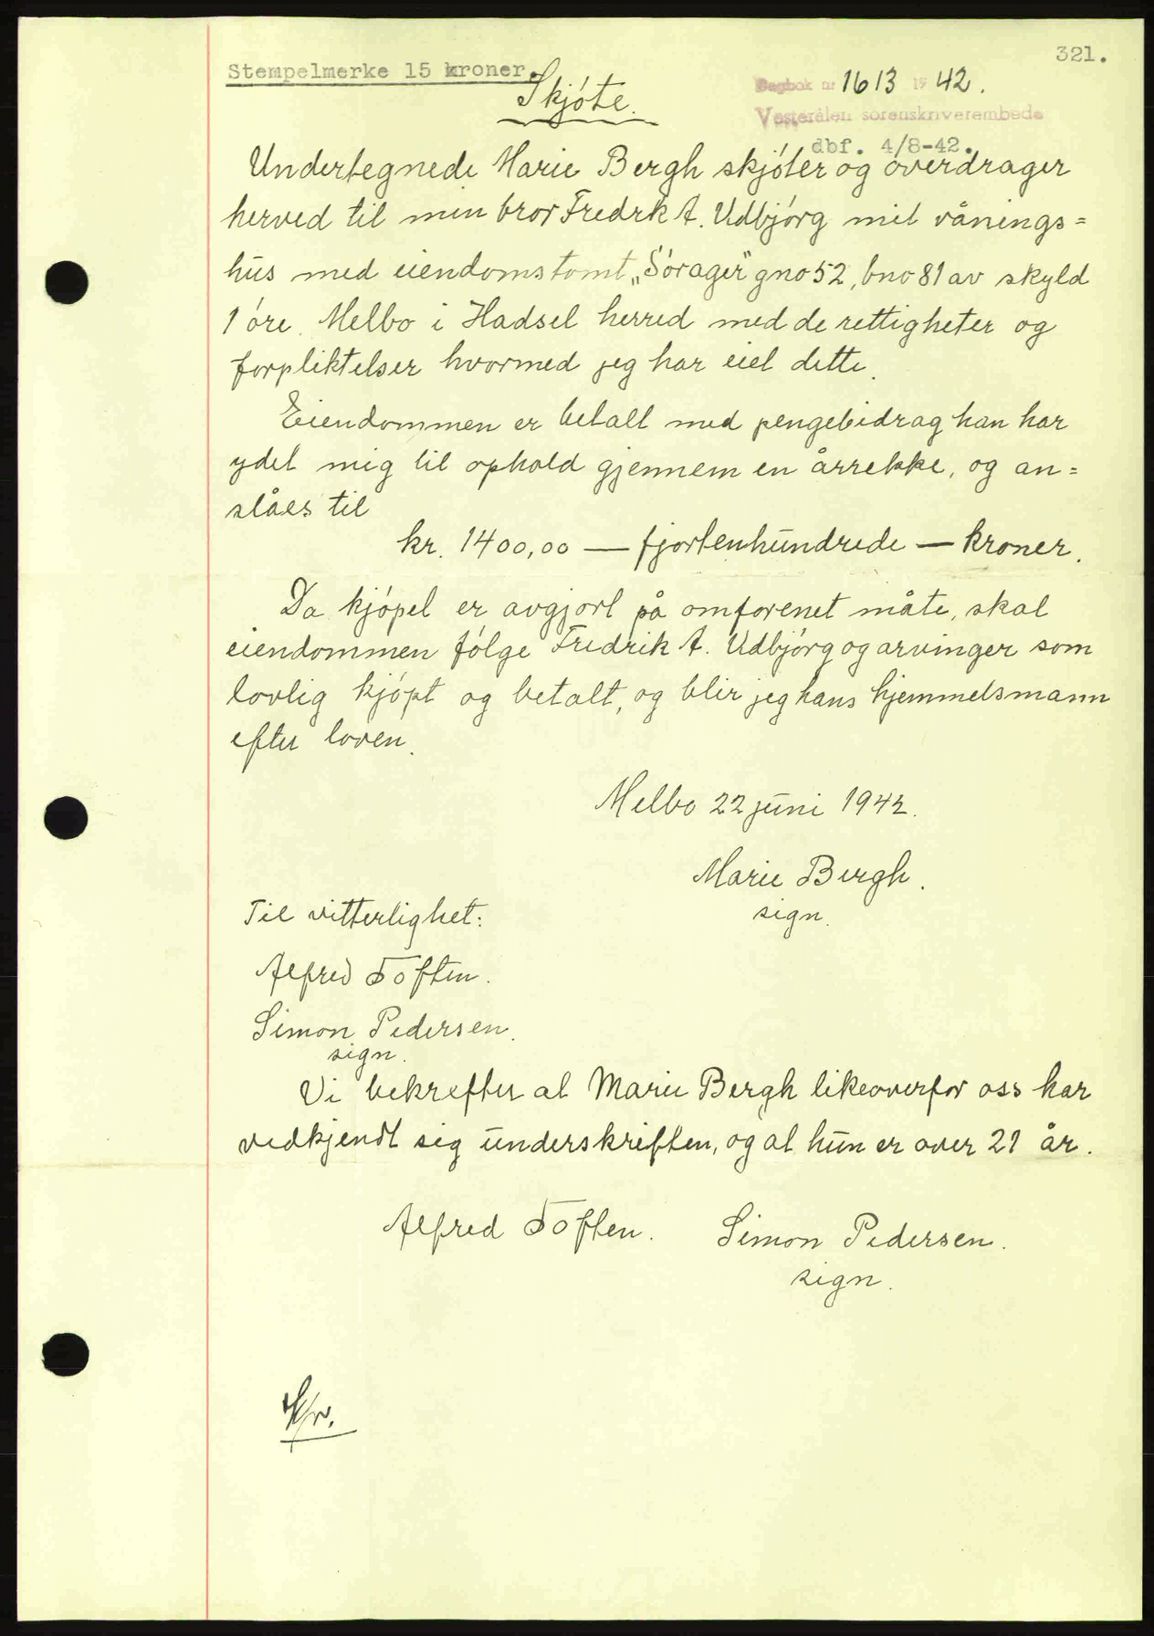 321.
Stempelmerke 15 kroner.
Skjøte.
Dagbok nr 1613 19 42.
Vesterålen sorenskriverembede
dbf. 4/8-42.
Undertegnede Marie Bergh skjøter og overdrager
herved til min bror Fredrk A. Udbjørg mit vånings=
hus med eiendomstomt „Sørager" gno 52, bno 81 av skyld
1 øre. Melbo i Hadsel herred med de rettigheter og
forpliktelser hvormed jeg har eiet dette.
Eiendommen er betalt med pengebidrag han har
ydet mig til ophold gjennem en årrekke, og an=
slåes til
kr. 1400,00 — fjortenhundrede — kroner.
Da kjøpet er avgjort på omforenet måte, skal
eiendommen følge Fredrik A. Udbjørg og arvinger som
lovlig kjøpt og betalt, og blir jeg hans hjemmelsmann
efter loven.
Melbo 22 juni 1942.
Marie Bergh.
sign.
Til vitterlighet:
Alfred Toften.
Simon Pedersen.
sign.
Vi bekrefter at Marie Bergh likeoverfor oss har
vedkjendt sig underskriften, og at hun er over 21 år.
Alfred Toften. Simon Pedersen.
sign.